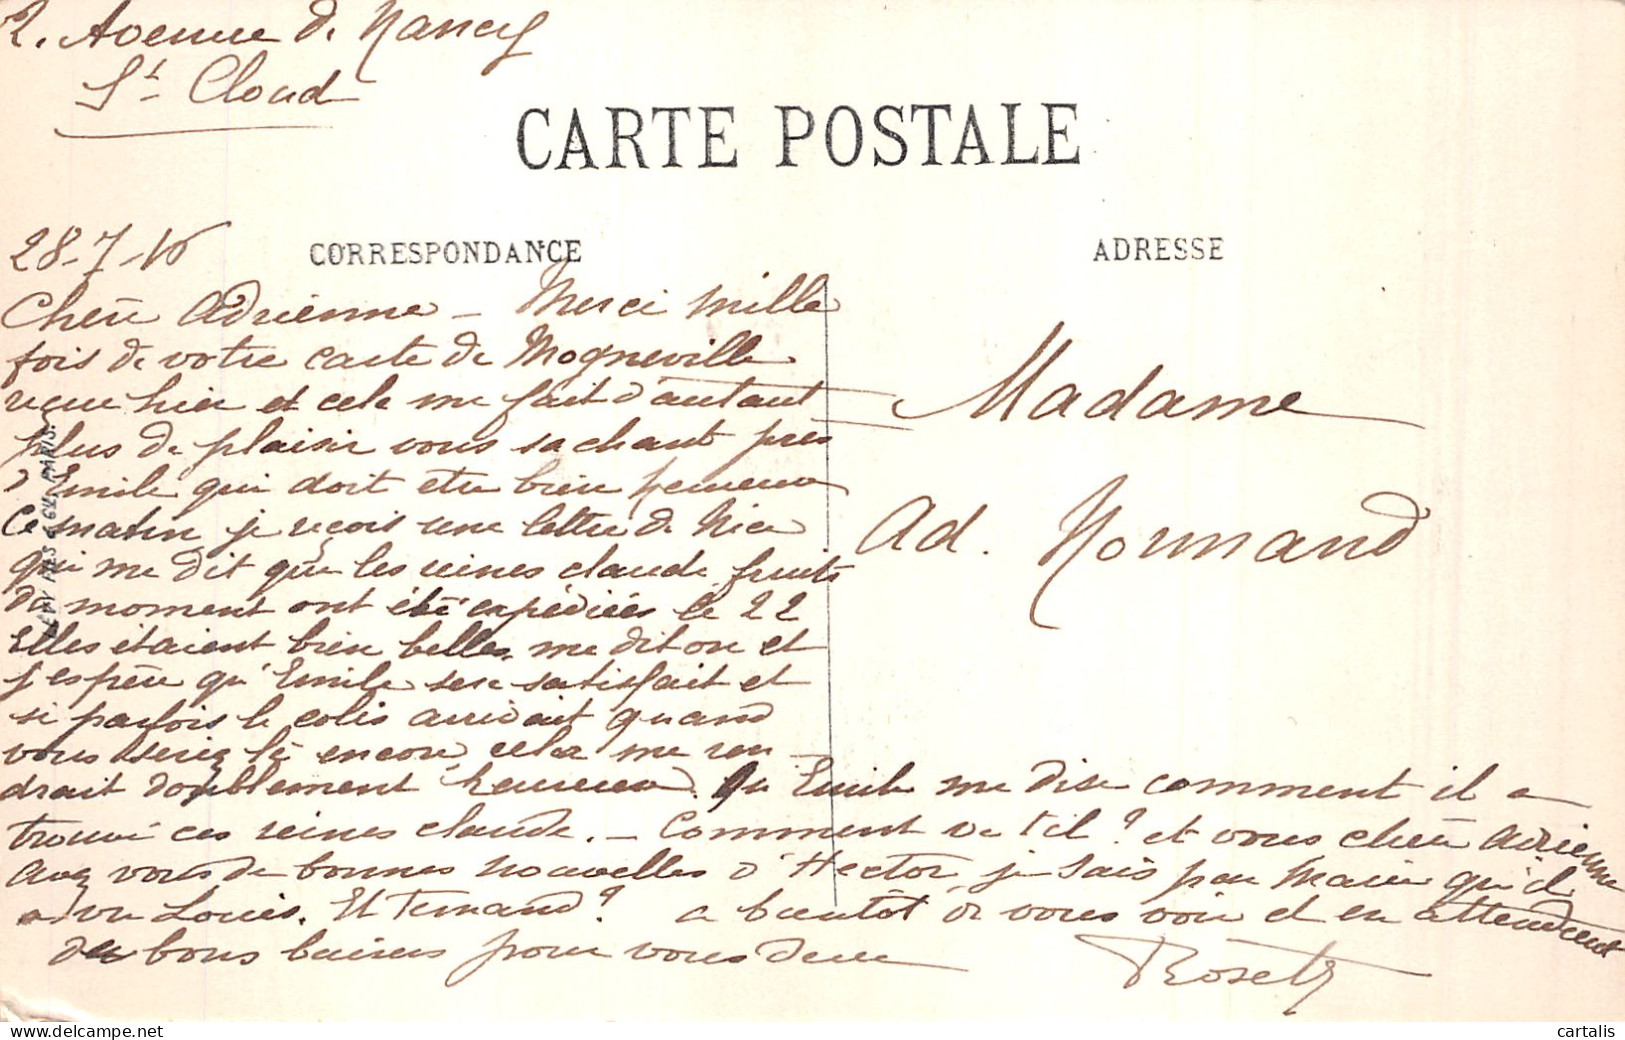 2. Avenue de Nancy
St Cloud
CARTE POSTALE
CORRESPONDANCE
ADRESSE
28-7-16
Chère Adrienne - Merci mille
fois de votre carte de Mogneville
reçue hier et cela me fait d'autant
plus de plaisir vous sachant près
d'Emile qui doit etre bien heureux
Ce matin je reçois une lettre de Nice
qui me dit que les reines claude fruits
du moment ont été expédiées le 22
Elles étaient bien belles me dit on et
j'espère qu'Emile sera satisfait et
si parfois le colis arrivait quand
vous seriez là encore, cela me ren
drait doublement heureuse. Qu'Emile me dise comment il a
trouvé ces reines claude. - Comment va t'il ? et vous chère Adrienne
avez vous de bonnes nouvelles d'Hector, je sais par Marie qu'il
a vu Louis. Et Fernand ? a bientôt de vous voir et en attendant
de bons baisers pour vous deux
Madame
Ad. Normand
cartalis
https://www.delcampe.net